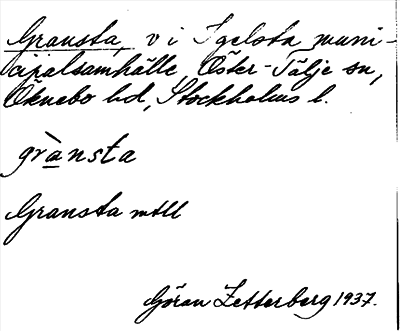 Gransta, v i Igelsta muni-
cipalsamhälle Öster-Tälje sn,
Öknebo hd, Stockholms l.
grànsta
Gransta mtll
Göran Zetterberg 1937.